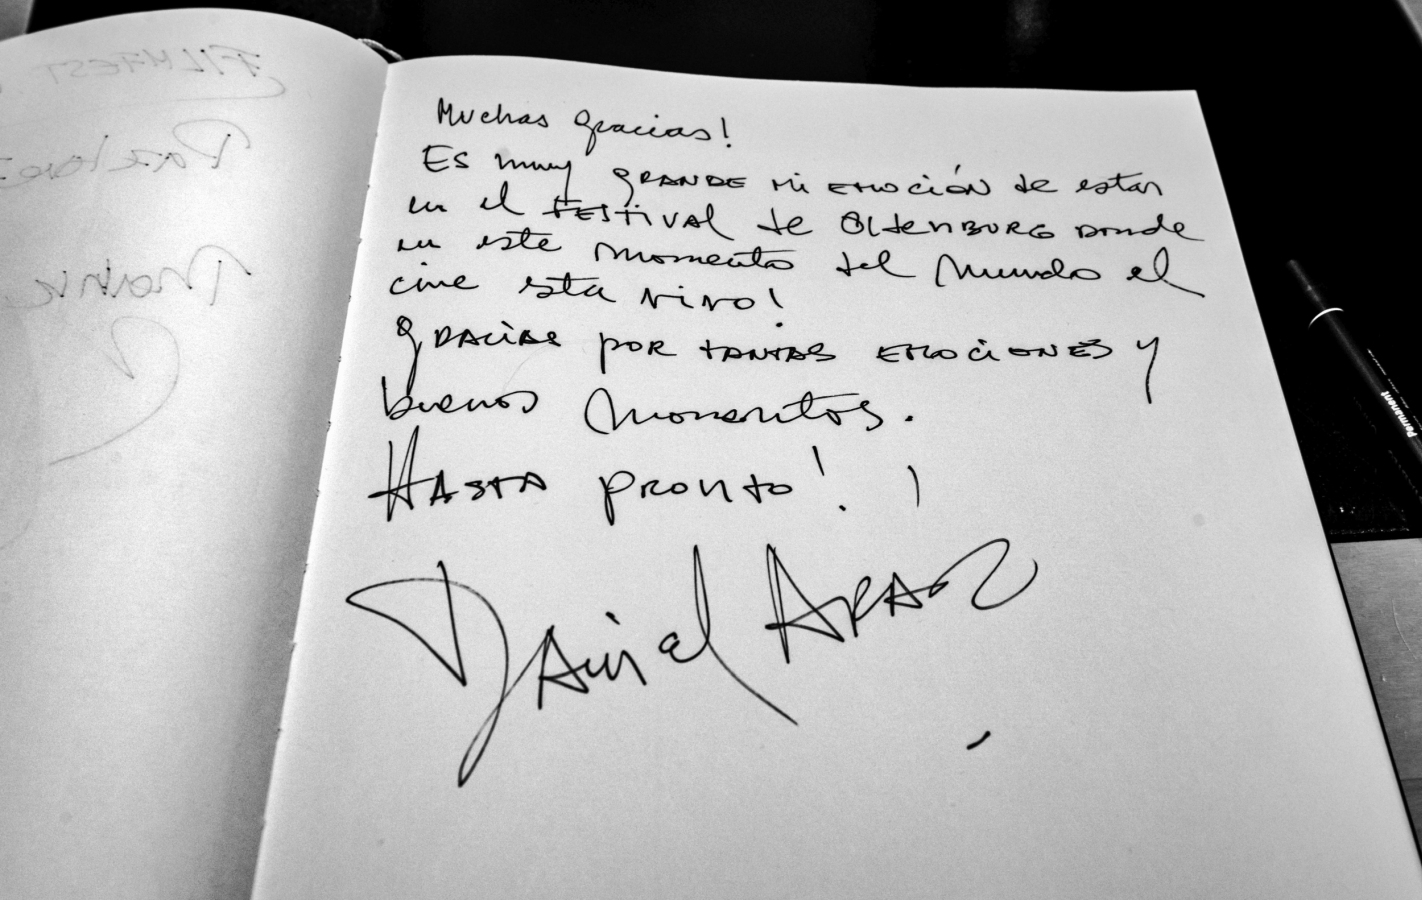 FILMFEST
Muchas gracias!
Es muy GRANDE mi EMOCIÓN de estar
en el FESTIVAL de OldenBURG DONDE
en este momento del mundo el
cine esta vivo!
gracias por tantas EMOCIONES y
buenos momentos.
HASTA pronto!
Daniel ARAOZ
Permanent